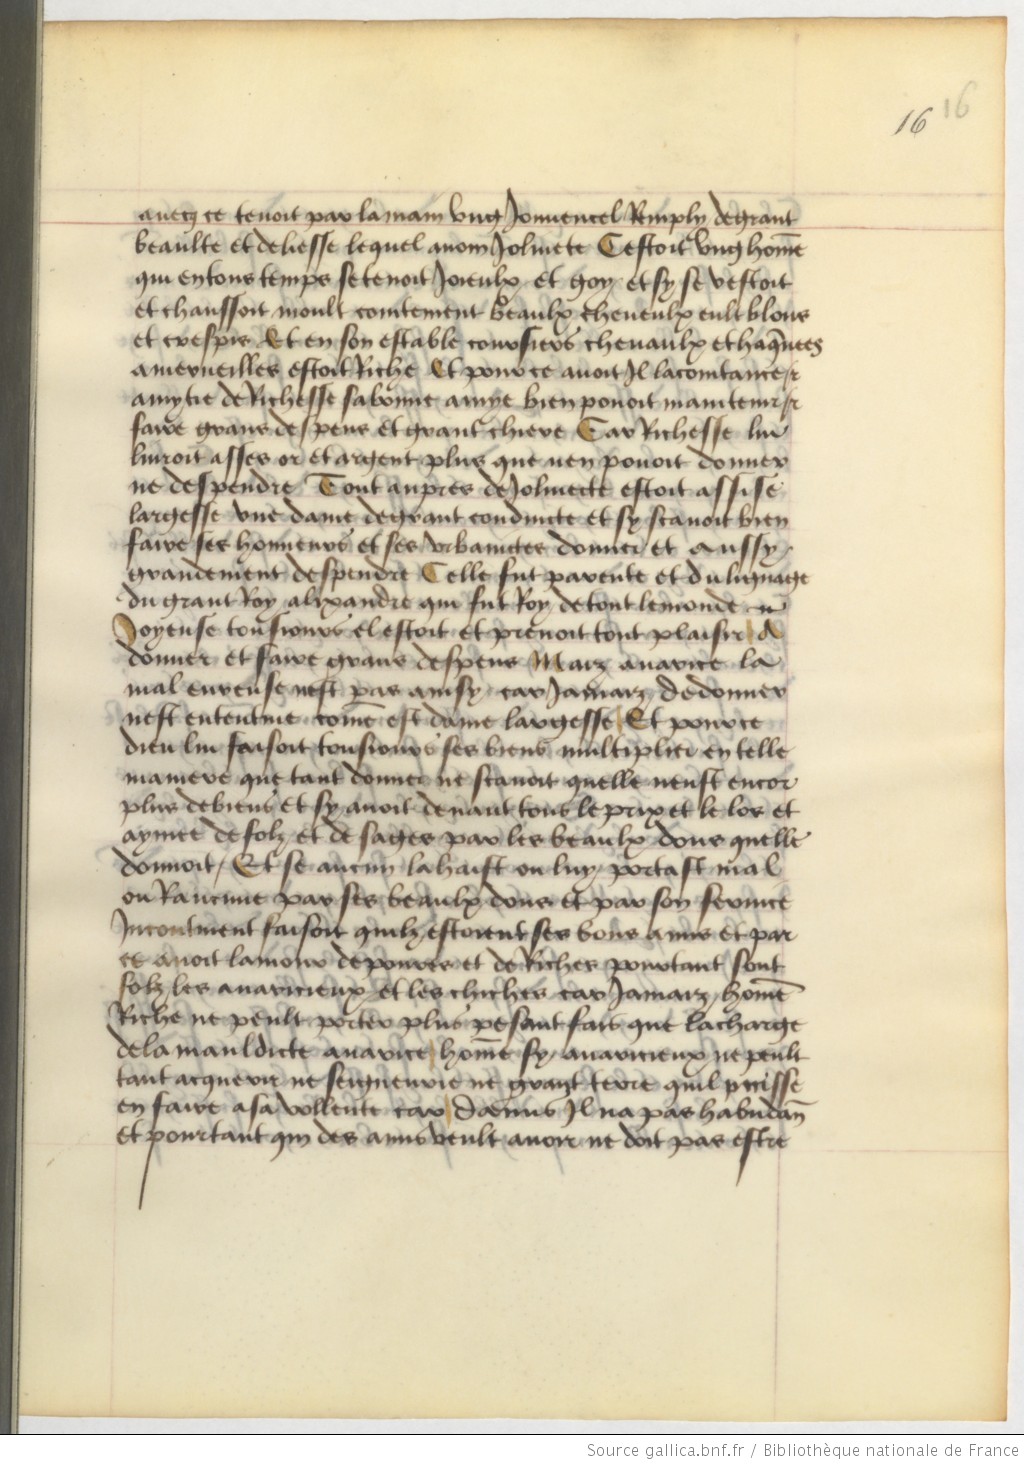 16 16
avecq ce tenoit par la main ung Jouuencel Remply de grant
beaulte et de liesse lequel auoit nom Joliuete Cestoit ung home
qui en tous temps se tenoit Joieulx et goy et sy se vestoit
et chaussoit moult cointement beaulx cheueulx eult blons
et crespis Et en son estable coursiers cheuaulx et haquees
a merueilles estoit Riche Et pour ce auoit Il lacointance et
amytie de Richesse sa bonne amye bien pouoit maintenir et
faire grans despens et grant chiere Car Richesse luy
liuroit asses or et argent plus que nen pouoit donner
ne despendre Tout aupres de Joliuecte estoit assise
largesse vne dame de grant conduicte et sy scauoit bien
faire ses honneurs et ses vrbanites donner et aussy
grandement despendre Celle fut parente et du lignage
du grant Roy alixandre qui fut Roy de tout le monde
Joyeuse tousiours el estoit et prenoit tout plaisir A
donner et faire grans despens Maiz auarice la
mal eureuse nest pas ainsy car Jamaiz de donner
nest ententiue come est dame largesse Et pour ce
dieu lui faisoit tousiours ses biens multiplier en telle
maniere que tant donner ne scauoit quelle neust encor
plus de biens et sy auoit deuant tous le prix et le los et
aymee de folz et de sages par les beaulx dons quelle
donnoit Et se aucun la haist ou luy portast mal
ou Rancune par ses beaulx dons et par son seruice
Incontinent faisoit quilz estoient ses bons amis et par
ce auoit lamour de poures et de Riches pourtant sont
folz les auaricieux et les chiches car Jamaiz home
Riche ne peult porter plus pesant fais que la charge
de la mauldicte auarice home sy auaricieux ne peult
tant acquerir ne seigneurie ne grant terre quil puisse
en faire a sa vollente car damis Il na pas habundan
et pourtant qui des amis veult auoir ne doit pas estre
Source gallica.bnf.fr / Bibliothèque nationale de France